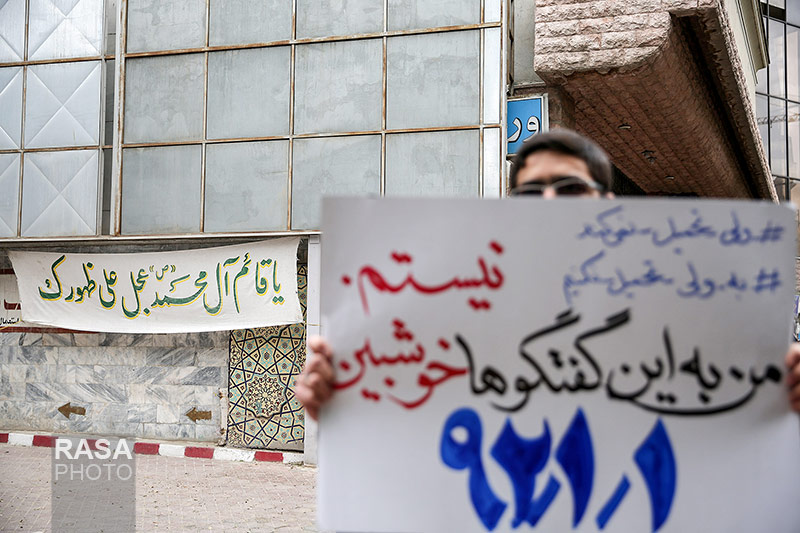 ور
یا قائم آل محمد "ص" عجل علی ظهورک
#ولی_تحمیل_نمی‌کند
#به_ولی_تحمیل_نکنیم
من به این گفتگوها خوشبین نیستم.
۹۲/۸/۱
RASA
PHOTO